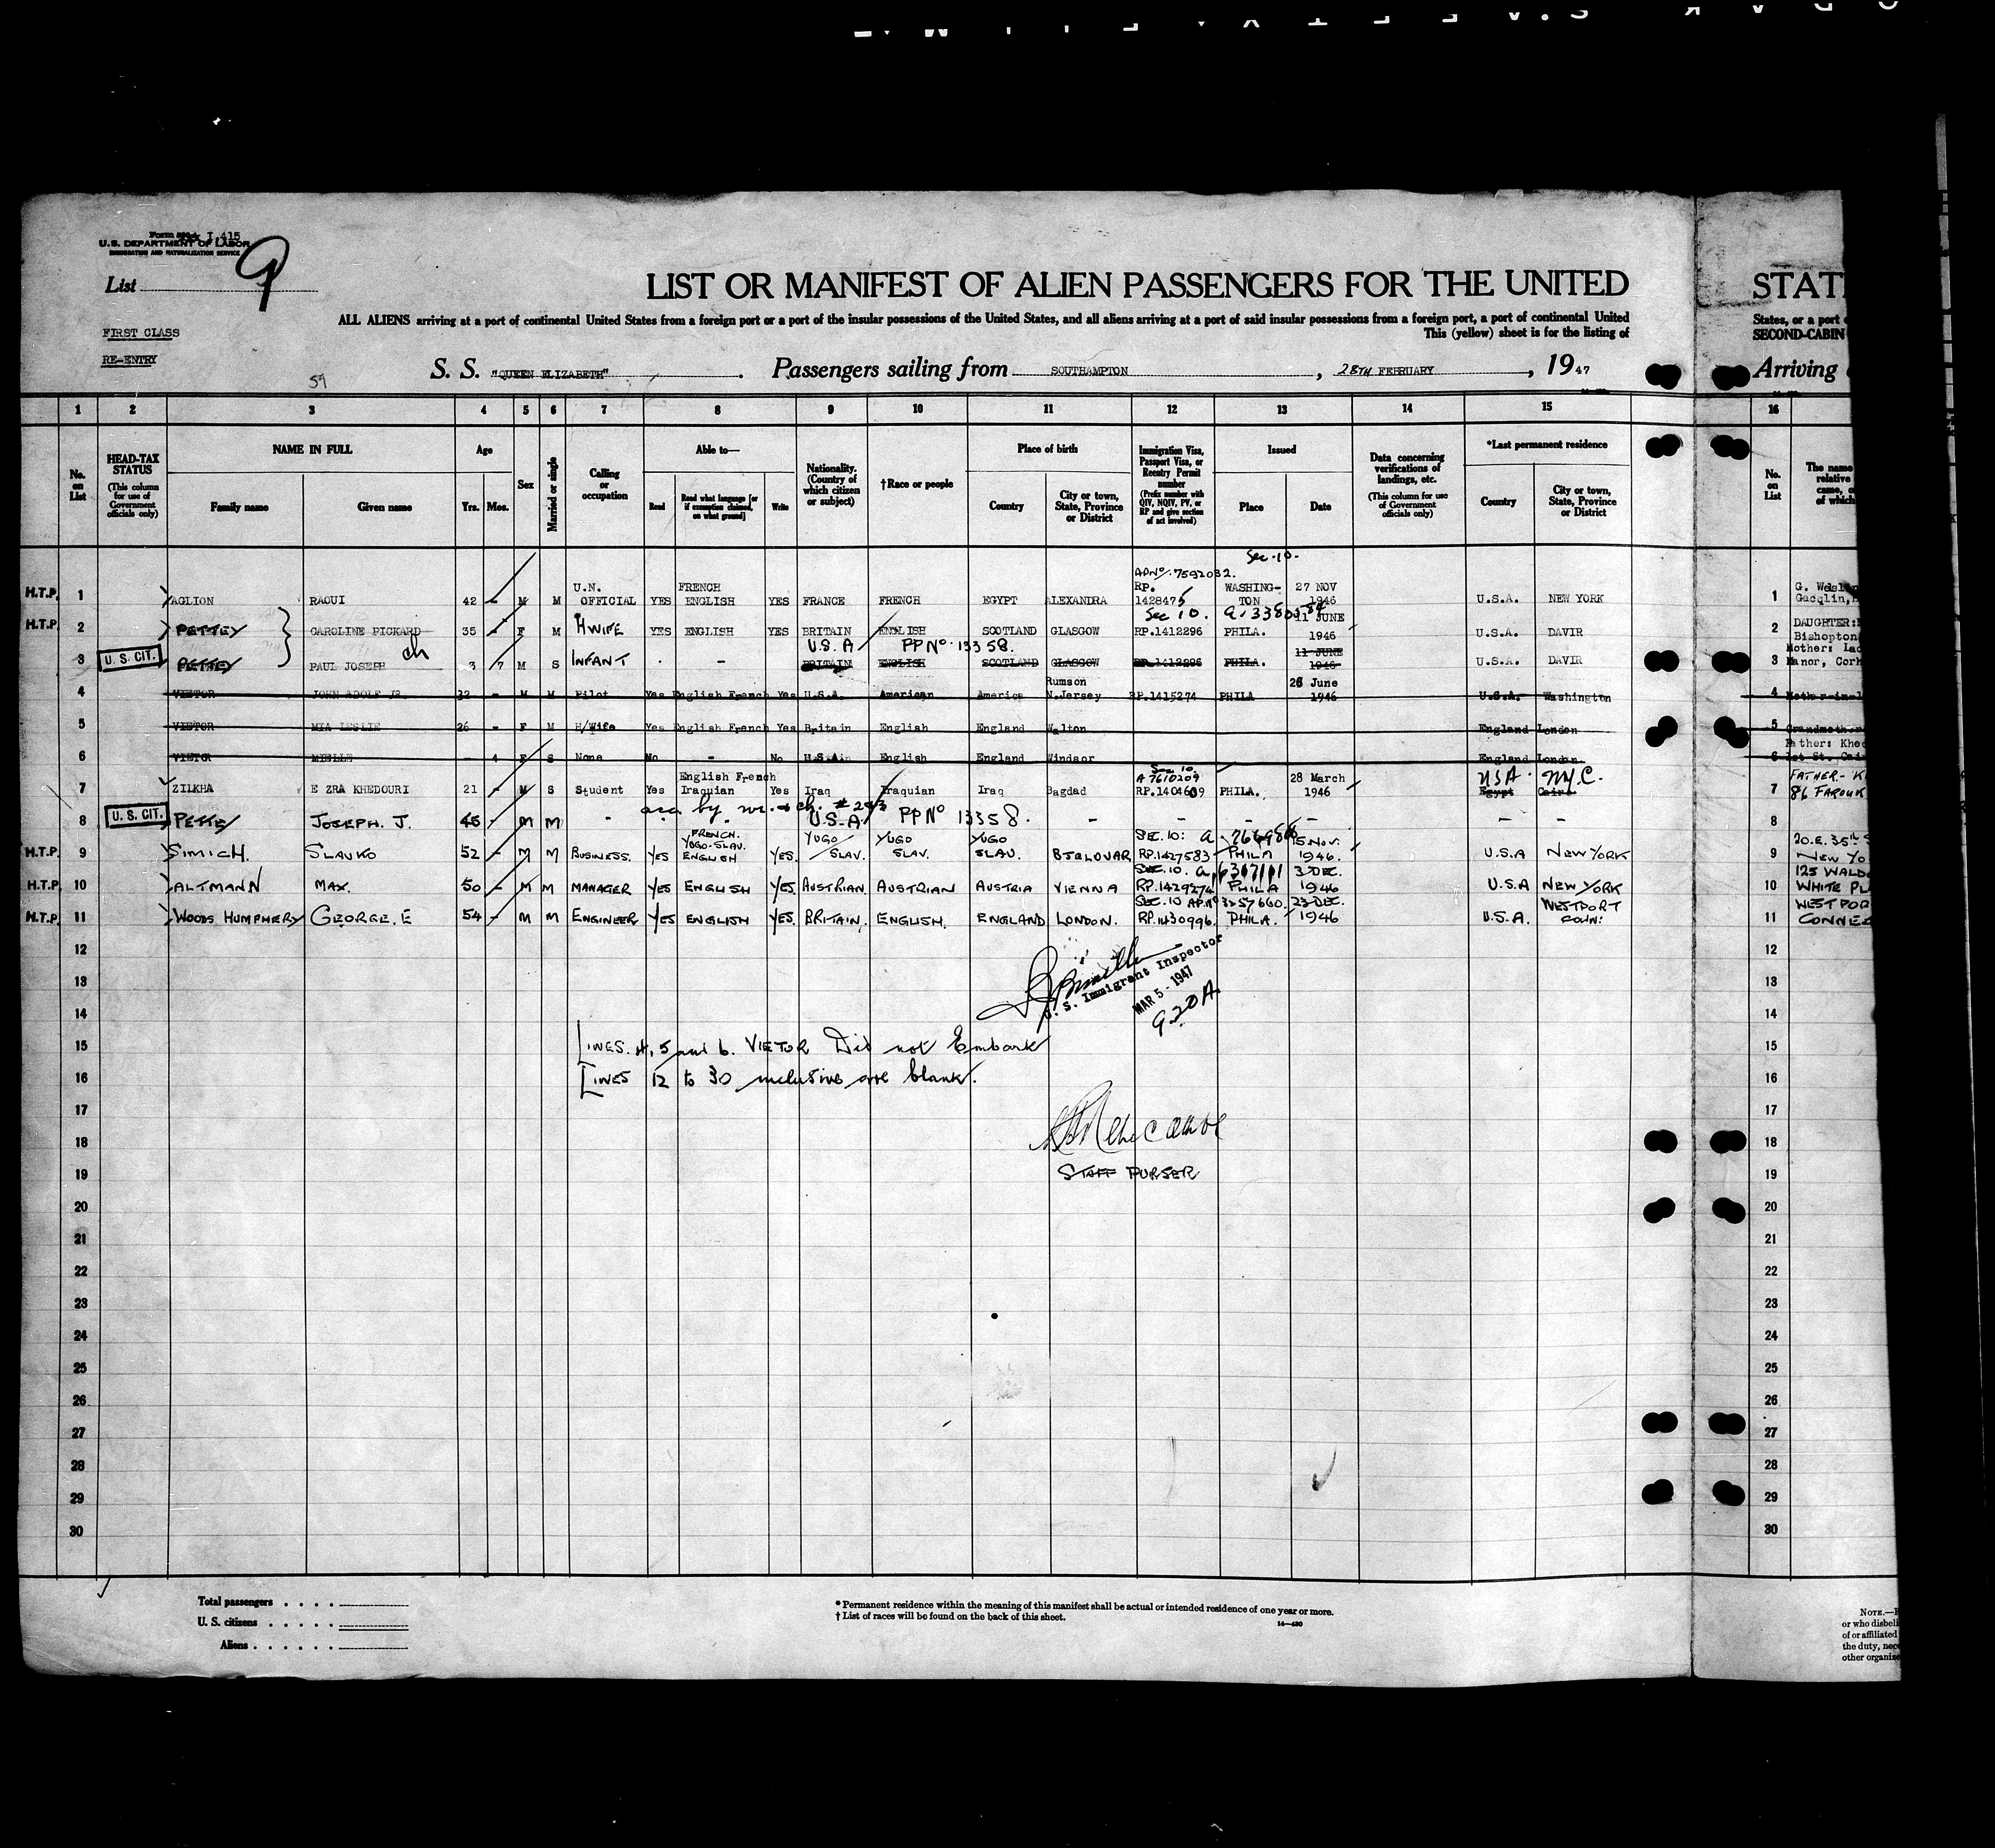 Form I 415
U.S. DEPARTMENT OF LABOR
IMMIGRATION AND NATURALIZATION SERVICE
List 9
FIRST CLASS
RE-ENTRY
59
LIST OR MANIFEST OF ALIEN PASSENGERS FOR THE UNITED
ALL ALIENS arriving at a port of continental United States from a foreign port or a port of the insular possessions of the United States, and all aliens arriving at a port of said insular possessions from a foreign port, a port of continental United
This (yellow) sheet is for the listing of
S. S. "QUEEN ELIZABETH". Passengers sailing from SOUTHAMPTON, 28TH FEBRUARY, 1947
STAT
States, or a port
SECOND-CABIN
Arriving
1 2 3 4 5 6 7 8 9 10 11 12 13 14 15 16
No. on List
HEAD-TAX STATUS (This column for use of Government officials only)
NAME IN FULL Family name Given name
Age Yrs. Mos.
Sex
Married or single
Calling or occupation
Able to— Read Read what language [or if exemption claimed, on what ground] Write
Nationality. (Country of which citizen or subject)
†Race or people
Place of birth Country City or town, State, Province or District
Immigration Visa, Passport Visa, or Reentry Permit number (Prefix number with QIV, NQIV, PV, or RP and give section of act involved)
Issued Place Date
Data concerning verifications of landings, etc. (This column for use of Government officials only)
*Last permanent residence Country City or town, State, Province or District
No. on List
The name relative came, of which
Sec. 10.
H.T.P. 1 AGLION RAOUL 42 - M M U.N. OFFICIAL YES FRENCH ENGLISH YES FRANCE FRENCH EGYPT ALEXANDRA APNº 7592032. RP. 1428475 WASHINGTON 27 NOV 1946 U.S.A. NEW YORK 1 G. Gacqlin,
H.T.P. 2 PETTEY CAROLINE PICKARD 35 - F M HWIFE YES ENGLISH YES BRITAIN ENGLISH SCOTLAND GLASGOW Sec 10. RP.1412296 PHILA. 11 JUNE 1946 U.S.A. DAVIR 2 DAUGHTER: Bishopton
U.S. CIT. 3 PETTEY PAUL JOSEPH ch 3 7 M S INFANT - - U.S.A BRITAIN PP Nº 13358. ENGLISH SCOTLAND GLASGOW RP.1412296 PHILA. 11 JUNE 1946 U.S.A. DAVIR 3 Mother: Manor, Corh
4 VIETOR JOHN ADOLF JR. 32 - M M Pilot Yes English French Yes U.S.A. American America Rumson N.Jersey RP.1415274 PHILA 26 June 1946 U.S.A. Washington 4 Mother-in-l
5 VIETOR MIA LESLIE 26 - F M H/Wife Yes English French Yes Britain English England Walton England London 5 Grandmother
6 VIETOR - 4 F S None No - No English England Windsor England London 6 Father: Khe 1st St. Cai
7 ZILKHA E ZRA KHEDOURI 21 - M S Student Yes English French Iraquian Yes Iraq Iraquian Iraq Bagdad Sec 10. A 7610209 RP.1404609 PHILA. 28 March 1946 USA. N.Y.C. Egypt Cairo. 7 FATHER- K 86 FAROUK
U.S. CIT. 8 PETTEY JOSEPH. J. 45 - M M - U.S.A. PP Nº 13358. - - - - 8
H.T.P. 9 SIMICH. SLAVKO 52 - M M BUSINESS. YES FRENCH. YUGO-SLAV. ENGLISH YES. YUGO/SLAV. YUGO SLAV. YUGO SLAV. BJELOVAR SEC. 10: RP.1427583 PHILA 15 Nov. 1946. U.S.A NEW YORK 9 20.E.35th NEW YO
H.T.P. 10 ALTMANN MAX. 50 - M M MANAGER YES ENGLISH YES. AUSTRIAN. AUSTRIAN AUSTRIA VIENNA SEC.10. RP.1429274 PHILA 3 DEC. 1946 U.S.A NEW YORK 10 125 WALD WHITE PL
H.T.P. 11 WOODS HUMPHERY GEORGE.E 54 - M M ENGINEER YES ENGLISH YES. BRITAIN, ENGLISH. ENGLAND LONDON. SEC.10 AP.Nº 3257660. RP.1430996. PHILA. 23 DEC. 1946 U.S.A. WESTPORT CONN: 11 WESTPOR CONNE
12 12
U. S. Immigrant Inspector
13 13
MAR 5 - 1947
9.20A.
14 14
15 LINES. 4, 5 and 6. VIETOR Did not Embark 15
16 LINES 12 to 30 inclusive are blank. 16
17 17
18 18
19 STAFF PURSER 19
20 20
21 21
22 22
23 23
24 24
25 25
26 26
27 27
28 28
29 29
30 30
Total passengers . . . .
U. S. citizens . . . . .
Aliens . . . . . .
* Permanent residence within the meaning of this manifest shall be actual or intended residence of one year or more.
† List of races will be found on the back of this sheet.
14—430
NOTE.—
or who disbeli
of or affiliated
the duty, nece
other organize